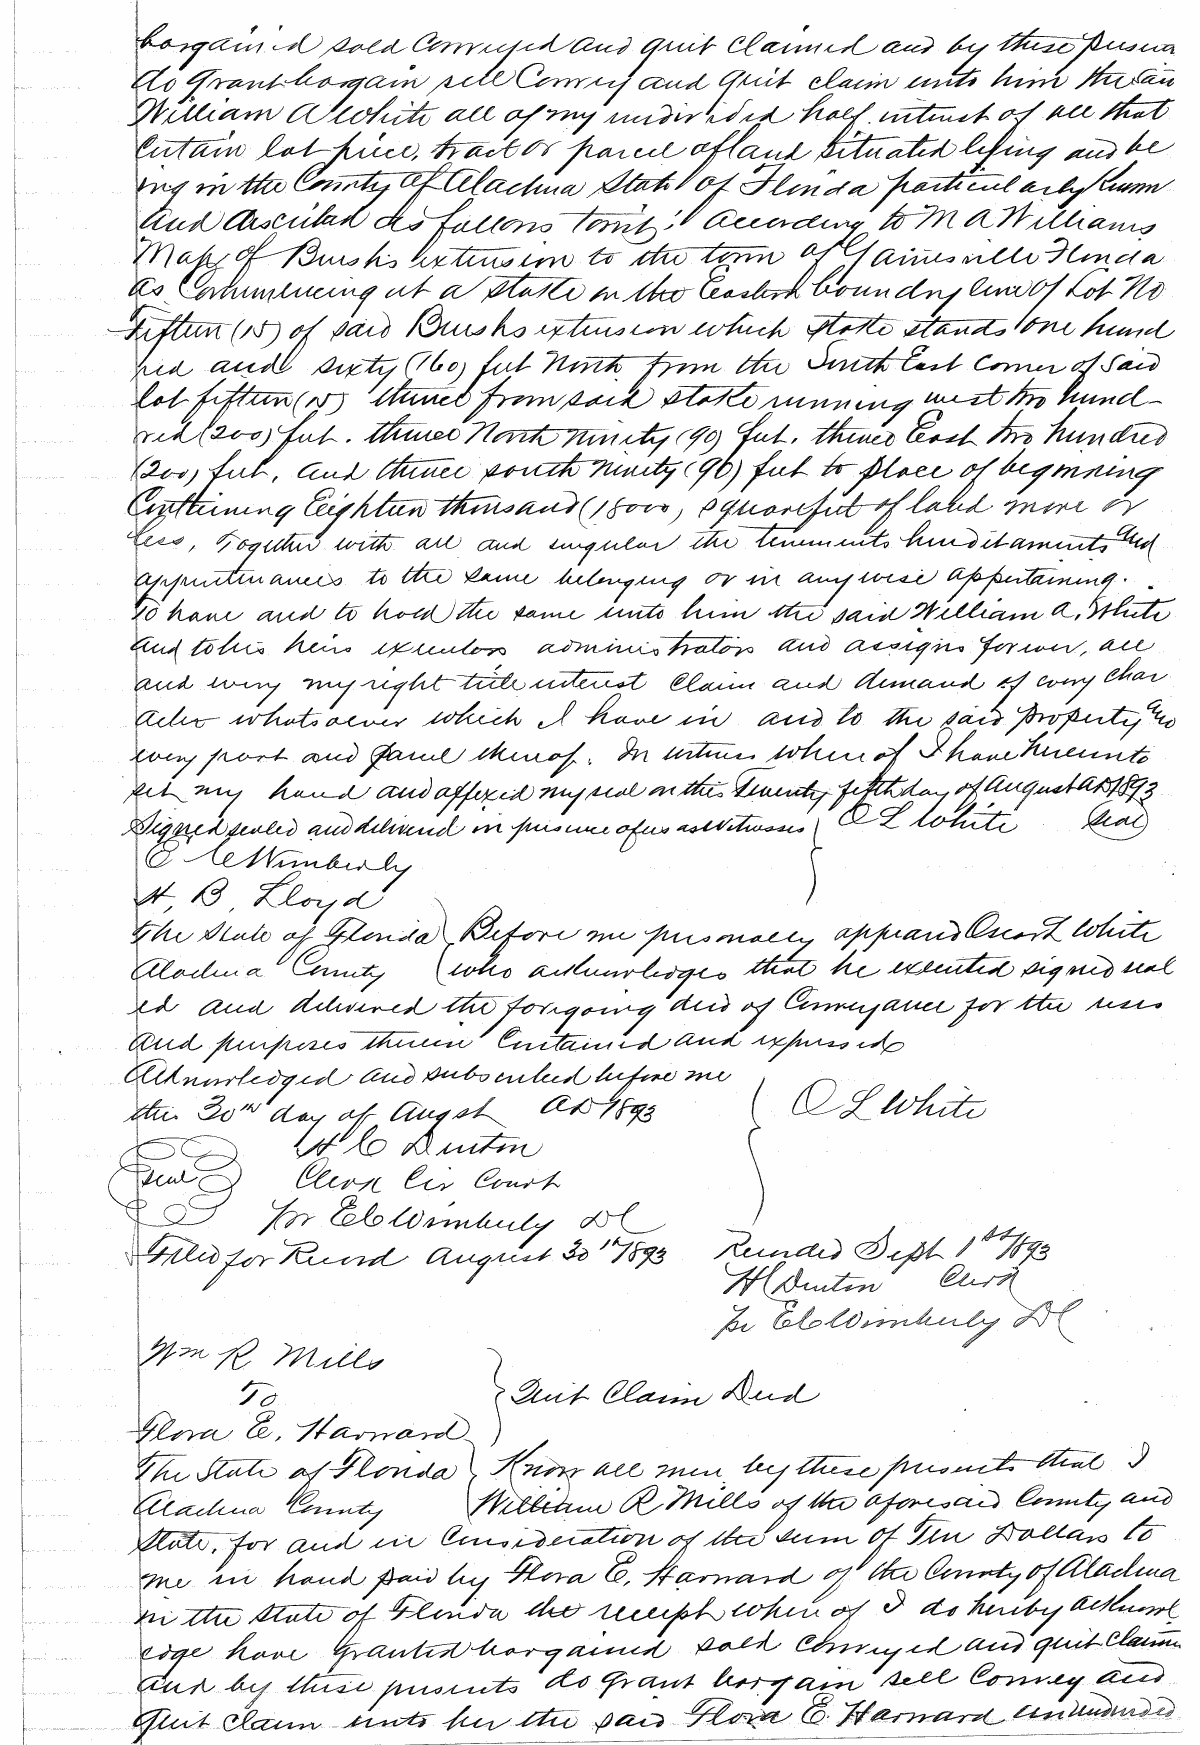 bargained sold Conveyed and quit Claimed and by these presen
do Grant bargain sell Convey and Quit claim unto him the
William A White all of my undivided half interest of all that
Certain lot piece, tract or parcel of land situated lying and be
ing in the County of Alachua State of Florida particularly known
and discribed as follows towit: According to M A Williams
Map of Bushs extension to the town of Gainesville Florida
as Commencing at a stake on the Eastern boundry line of Lot No
Fifteen (15) of said Bushs extension which stake stands one hund
red and sixty (160) feet North from the South East Corner of Said
lot fifteen (15) thence from said stake running west two hund-
red (200) feet. thence North Ninety (90) feet. thence East two hundred
(200) feet, and thence south Ninety (90) feet to place of beginning
Containing Eighteen thousand (18000) square feet of land more or
less, Together with all and singular the tenements heriditaments and
appurtinances to the same belonging or in anywise appertaining.
To have and to hold the same unto him the said William A. White
and to his heirs executors administrators and assigns forever, all
and every my right title interest Claim and demand of every Char
acter whatsoever which I have in and to the said property and
every part and parcel thereof. In witness where of I have hereunto
set my hand and affixed my seal on this Twenty fifth day of August AD 1893
Signed sealed and delivered in presence of us as Witnesses O L White Seal
E C Wimberly
H. B. Lloyd
The State of Florida Before me personally appeared Oscar L White
Alachua County who acknowledges that he executed signed seal
ed and delivered the foregoing deed of Conveyance for the uses
and purposes therein Contained and expressed
Acknowledged and subscribed before me
this 30th day of Augst AD 1893 O L White
H C Denton
Seal Clerk Cir Court
for E C Wimberly DC
Filed for Record August 30th 1893 Recorded Sept 1st 1893
H C Denton Clerk
Pr E C Wimberly DC
Wm R Mills
To Quit Claim Deed
Flora E. Harnard
The State of Florida Know all men by these presents that I
Alachua County William R Mills of the aforesaid County and
State, for and in Consideration of the sum of Ten Dollars to
me in hand paid by Flora E. Harnard of the County of Alachua
in the State of Florida the receipt where of I do hereby acknowl
edge have granted bargained sold conveyed and quit Claimed
and by these presents do grant bargain sell Convey and
Quit claim unto her the said Flora E. Harnard an undivided